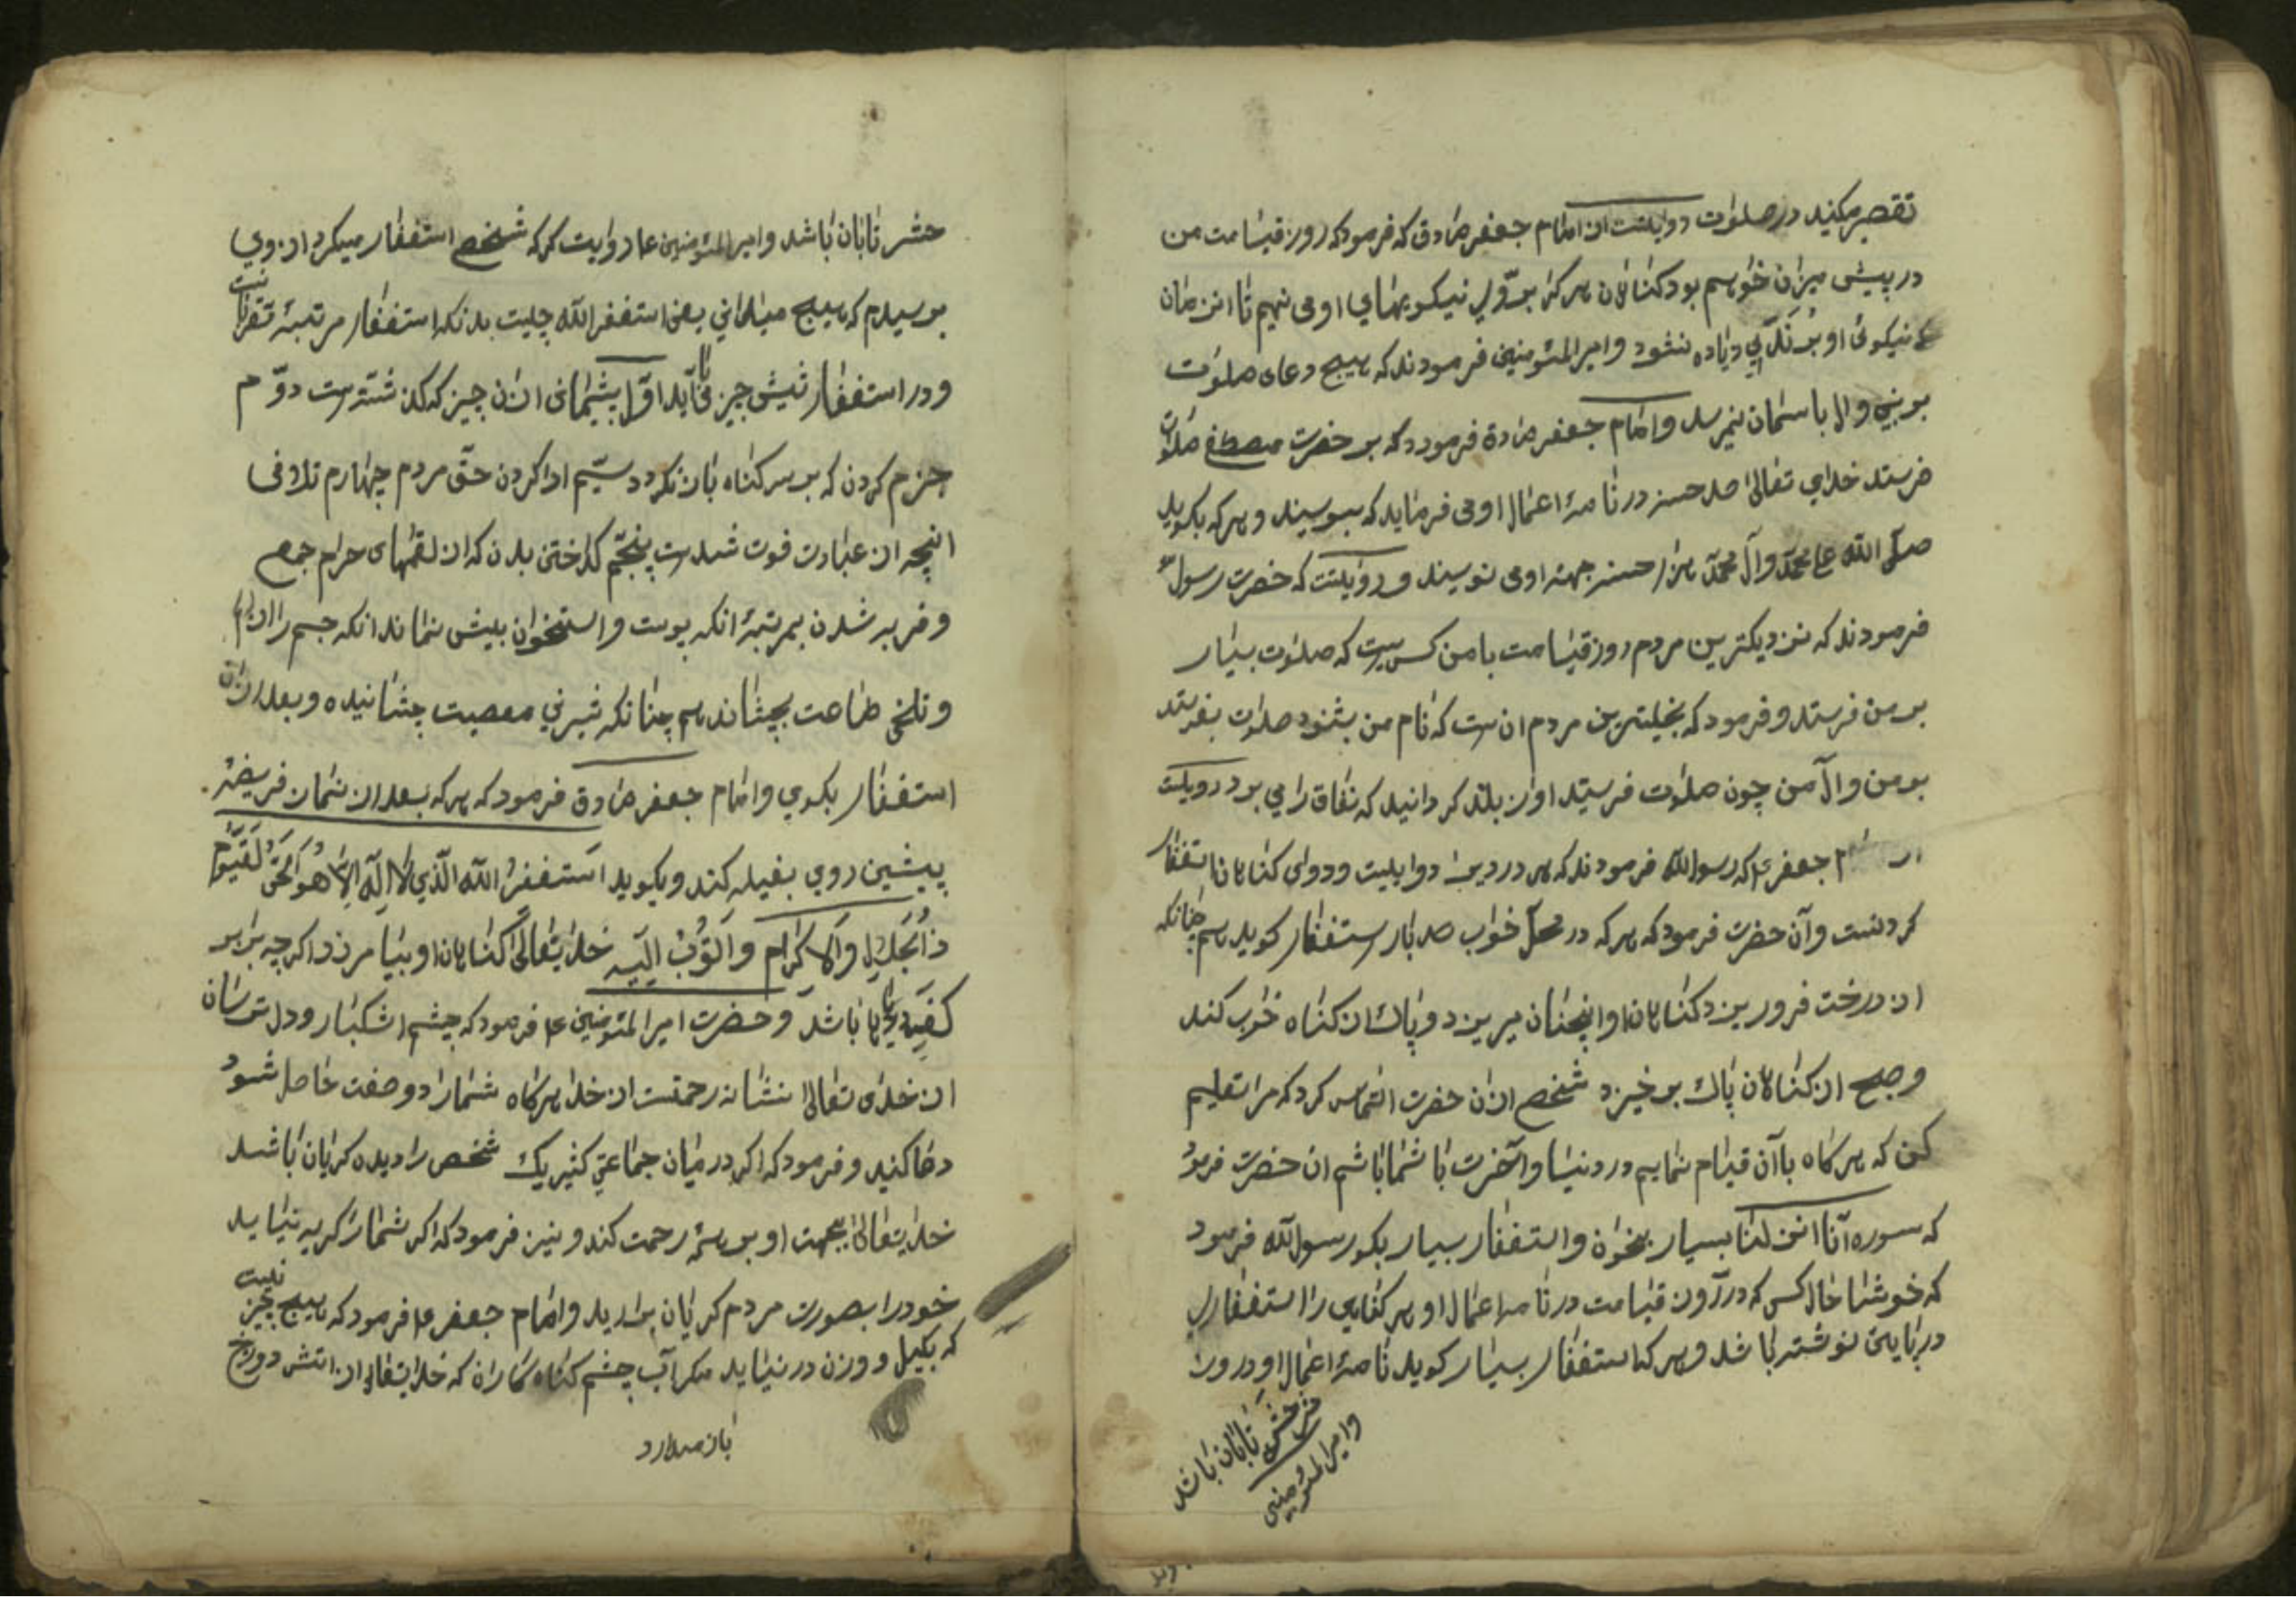 تقصیر میکنید در صلوٰت روایتست از امٰام جعفر صٰادق که فرمود که روز قیٰامت من
در پیش میزان خوٰاهم بود کنٰاهٰان هر کرٰا بر نیکویهٰای او می نهم تٰا ان زمان
نیکوئی او بر زیٰاده نشود و امیر المئومنین فرمودند که هیچ دعای صلوٰت
بر نبی و الا باسمٰان نمیرسد و امٰام جعفر صٰادق فرمودد که بر حضرت مصطفی صلوٰات
فرستد خدٰای تعٰالیٰ صد حسنه در نٰامهٔ اعمٰال او می فرمٰاید که بنویسند و هر که بکوید
صلّی اللّه علی محمّد و آل محمّد هزٰار حسنه جهته او می نویسند و روٰایتست که حضرت رسول
فرمودند که نزدیکترین مردم روز قیٰامت با من کسی است که صلوٰت بسیٰار
بر من فرستد و فرمود که بخیلترین مردم ان ست که نٰام من بشنود صلوٰت نفرستد
بر من و آل من چون صلوٰت فرستید اوٰاز بلند کردانید که نفاق رٰا می برد روٰایتست
جعفر ع که رسول اللّه فرمودند که هر دردیرٰا دوٰایست و دوٰای کنٰاهٰان استغفٰار
کردنست و آن حضرت فرمود که هر که در محلّ خوٰاب صد بٰار استغفٰار کوید هم چنٰانکه
از درخت فرو ریزد کنٰاهٰان او انچنٰان میریزد و پٰاك از کنٰاه خوٰاب کند
و صبح از کنٰاهٰان پٰاك بر خیزد شخصی ازٰان حضرت التمٰاس کرد که مرٰا تعلیم
کن که هر کٰاه باآن قیٰام نمٰایم در دنیٰا و آخرت بٰا شمٰا بٰاشم ان حضرت فرمود
که سوره انّا انزلنٰا بسیار بخوٰان و استغفٰار بسیار بکو رسول اللّه فرمود
که خوشٰا حٰال کسی که در روز قیٰامت در نٰامه اعمٰال او هر کنٰاهی رٰا استغفٰاری
در پٰایٰین نوشته بٰاشد و هر که استغفٰار بسیٰار کوید نٰامهٔ اعمٰال او در روز
حشر تٰابٰان بٰاشد
و امیر المئومنین
حشر تٰابٰان بٰاشد و امیر المئومنین ع روٰایت کرد که شخصی استغفٰار میکرد از وی
پرسیدم که هیچ میدانی معنی استغفر اللّه چیست بدٰانکه استغفٰار مرتبهٔ مقرّبٰانست
و در استغفٰار شیش چیز می بٰاید اوّل پشیمٰانی ازٰان چیز که کذشته ست دوّم
جزم کردن که بر سر کنٰاه بٰاز نکردد سیّم ادا کردن حقّ مردم چهٰارم تلافی
انچه از عبٰادت فوت شده ست پنجّم کدٰاختن بدن که از لقمهٰای حرٰام جمع
و فربه شدن بمرتبهٔ انکه پوست و استخوٰان بیش نمٰاند انکه جسم رٰا
و تلخی طٰاعت بچشٰاند هم چنٰانکه شیرنی معصیت چشٰانیده و بعد ازٰان
استغفٰار بکوی و امٰام جعفر صٰادق فرمود که هر که بعد از نمٰاز فریضه
پیشین روی بقبله کند و بکوید اَستَغفِرُ اللّه الّذی لٰا اِلٰه اِلّا هُوَ الحَیُّ القَیّوُم
ذُو الجَلٰالِ وَ الاِکرٰام وَ اَتُوبُ اِلَیه خدٰایتعٰالیٰ کنٰاهٰان او بیٰامرزد اکرچه برٰابر
کف دریٰاهٰا بٰاشد و حضرت امیر المئومنین ع فرمود که چشم اشکبٰار و دل ترسٰان
از خدٰای تعٰالیٰ نشٰانه رحمتست از خدٰا هر کٰاه شمٰا رٰا دو صفت حٰاصل شود
دعٰا کنید و فرمود که اکر در میٰان جمٰاعتی کثیر یک شخص رٰا دیده کریٰان بٰاشد
خدٰایتعٰالیٰ بجهت او بر همه رحمت کند و نیز فرمود که اکر شمٰا رٰا کریه نیٰاید
خود رٰا بصورت مردم کریٰان برٰارید و امٰام جعفر ع فرمود که هیچ چیز نیست
که بکیل و وزن در نیٰاید مکر آب چشم کنٰاه کٰارٰان که خدٰایتعٰالی از اتش دوزخ
بٰاز میدٰارد